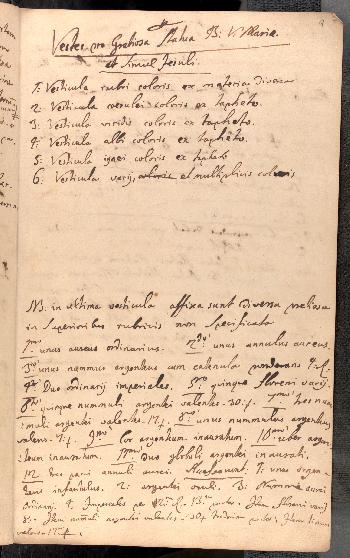 Vestes pro Gratiosa Statua B: V: Mariæ.
et simul Jesuli.
1: Vesticula rubri coloris ex materia diversa
2: Vesticula cærulei coloris ex tapheto.
3: Vesticula viridis coloris ex tapheto.
4: Vesticula albi coloris ex tapheto.
5: Vesticula ignei coloris ex tapheto
6: Vesticula varij, coloris et multiplicis coloris
NB. in ultima vesticula affixa sunt diversa pretiosa
in superioribus rubricis non specificata
1mo unus aureus ordinarius. 2do unus annulus aureus.
3tio unus nummus argenteus cum catenula
4to Duo ordinarij imperiales. 5to quinque floreni varij.
6to quinque nummuli argentei valentes
muli argentei valentes 8vo unus nummulus argenteus
valens 9no Cor argenteum inauratum. 10mo
teum inauratum. 11mo duo globuli argentei inaurati.
12 tres parvi annuli aurei. Accesserunt 1: unus argen-
teus infantulus. 2: argentei oculi. 3: Nummi aurei
ordinarij. 4: Imperiales Item floreni varij
8: Item nummuli argentei valentes
valens